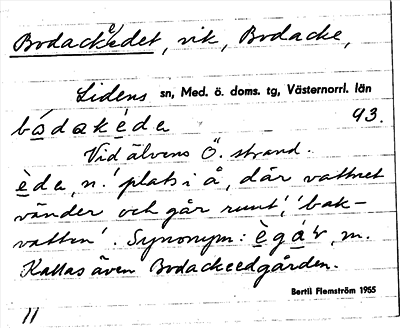 Bodackeedet, vik, Bodacke,
Lidens sn, Med. ö. doms. tg, Västernorrl. län
bódakèda 93.
Vid älvens Ö. strand.
èda, n.' plats i å, där vattnet
vänder och går runt', 'bak-
vatten'. Synonym: ègár, m.
Kallas även Bodackeedgården.
Bertil Flemström 1955
11